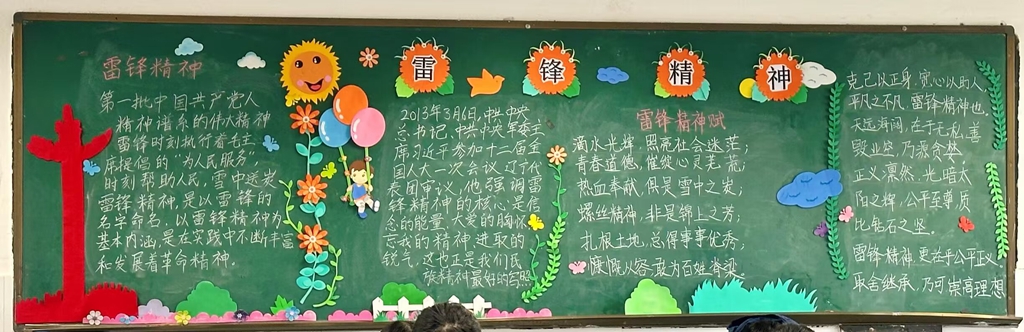 雷锋精神
雷锋精神
第一批中国共产党人
精神谱系的伟大精神
雷锋时刻执行着毛主
席提倡的“为人民服务”，
时刻帮助人民，雪中送炭
雷锋精神，是以雷锋的
名字命名，以雷锋精神为
基本内涵，是在实践中不断丰富
和发展着革命精神。
2013年3月6日，中共中央
总书记、中共中央军委主
席习近平参加十二届全
国人大一次会议辽宁代
表团审议，他强调雷
锋精神的核心是信
念的能量，大爱的胸怀
忘我的精神，进取的
锐气，这也正是我们民
族精神最好的写照
雷锋精神赋
滴水光辉，照亮社会迷茫；
青春道德，催绽心灵芜荒；
热血奉献，但是雪中之炭；
螺丝精神，非是锦上之芳；
扎根土地，总得事事优秀，
慷慨从容，敢为百姓脊梁
克己以正身，宽心以助人
平凡之不凡，雷锋精神也
天远海阔，在于无私，善
毁业空，乃源贪婪，
正义凛然，光暗太
阳之辉，公平至尊，质
比钻石之坚。
雷锋精神，更在乎公平正义
取舍继承，乃可崇高理想